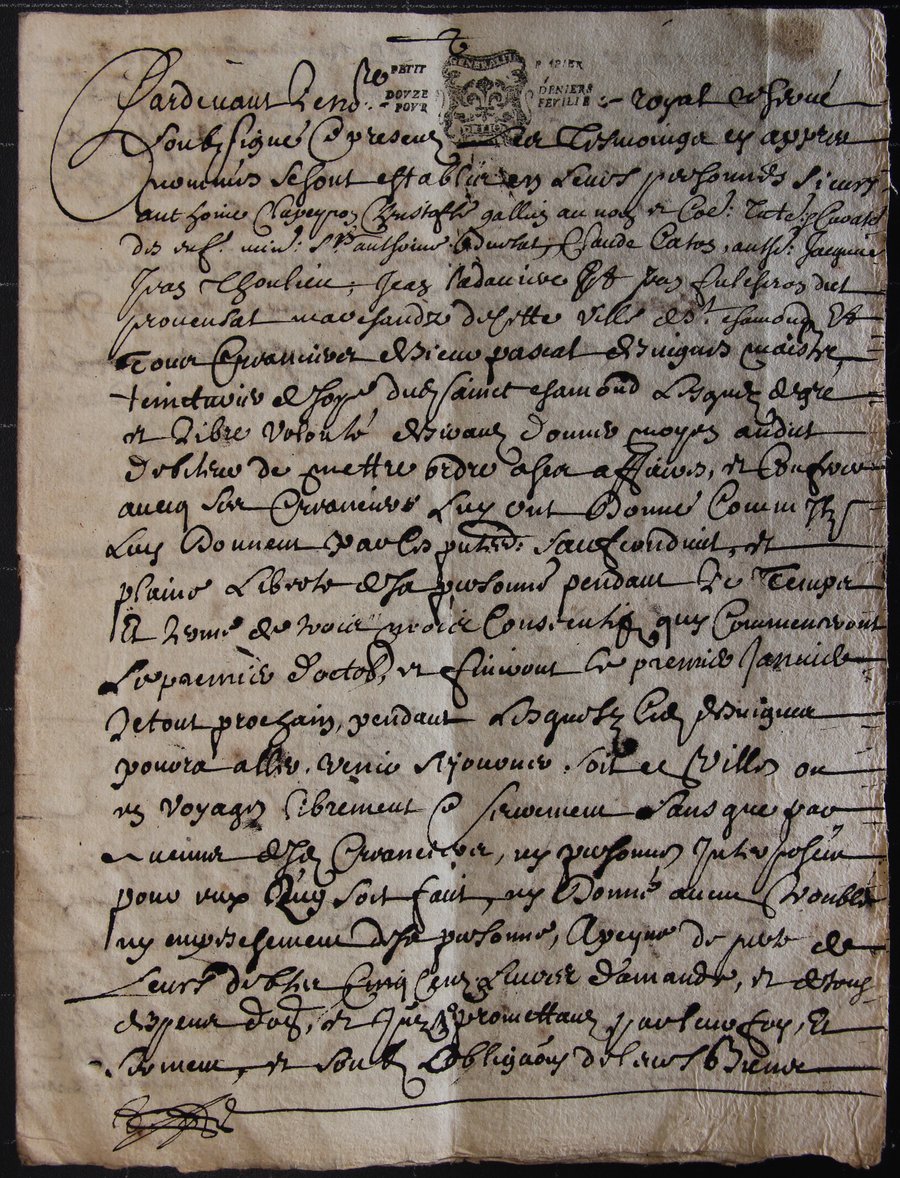 GENERALITE
PETIT PAPIER
DOUZE DENIERS
POUR FEUILLE
Pardevant le no.re royal reservé
soubzsigné et presens les tesmoings en apprès
nommés se sont establis en leurs personnes sieurs
anthoine Clapeyron Christofle gallien au nom et
des enf. min. Claude Jacques
Jean Thoulieu, Jean Jean dict
provensal marchandz de cette ville de St. chamond
Tous creanciers de sieur pascal maistre
teinturier de soye dud. sainct chamond Lesquelz de gré
et libre volonté desirans donner moyen audict
debiteur de mettre ordre a ses affaires, et
avecq ses creanciers luy ont donné comme ilz
luy donnent par les pntes saufconduit, et
plaine liberté de sa personne pendant le temps
et terme de trois mois consecutifz quy commenceront
le premier d'octob. et finiront le premier Janvier
le tout prochain, pendant lesquelz led.
pourra aller, venir sejourner, soit en ville ou
en voyages librement et seurement sans que par
aucuns desd. creanciers, ny personnes interposées
pour eux luy soit fait, ny donné aucun trouble
ny empeschement de sa personne, a peyne de perte de
leurs debtes cinq cens livres d'amande, et de tous
despens et promettans par leur foy, et
serment, et soubz l'obligaon de leurs biens